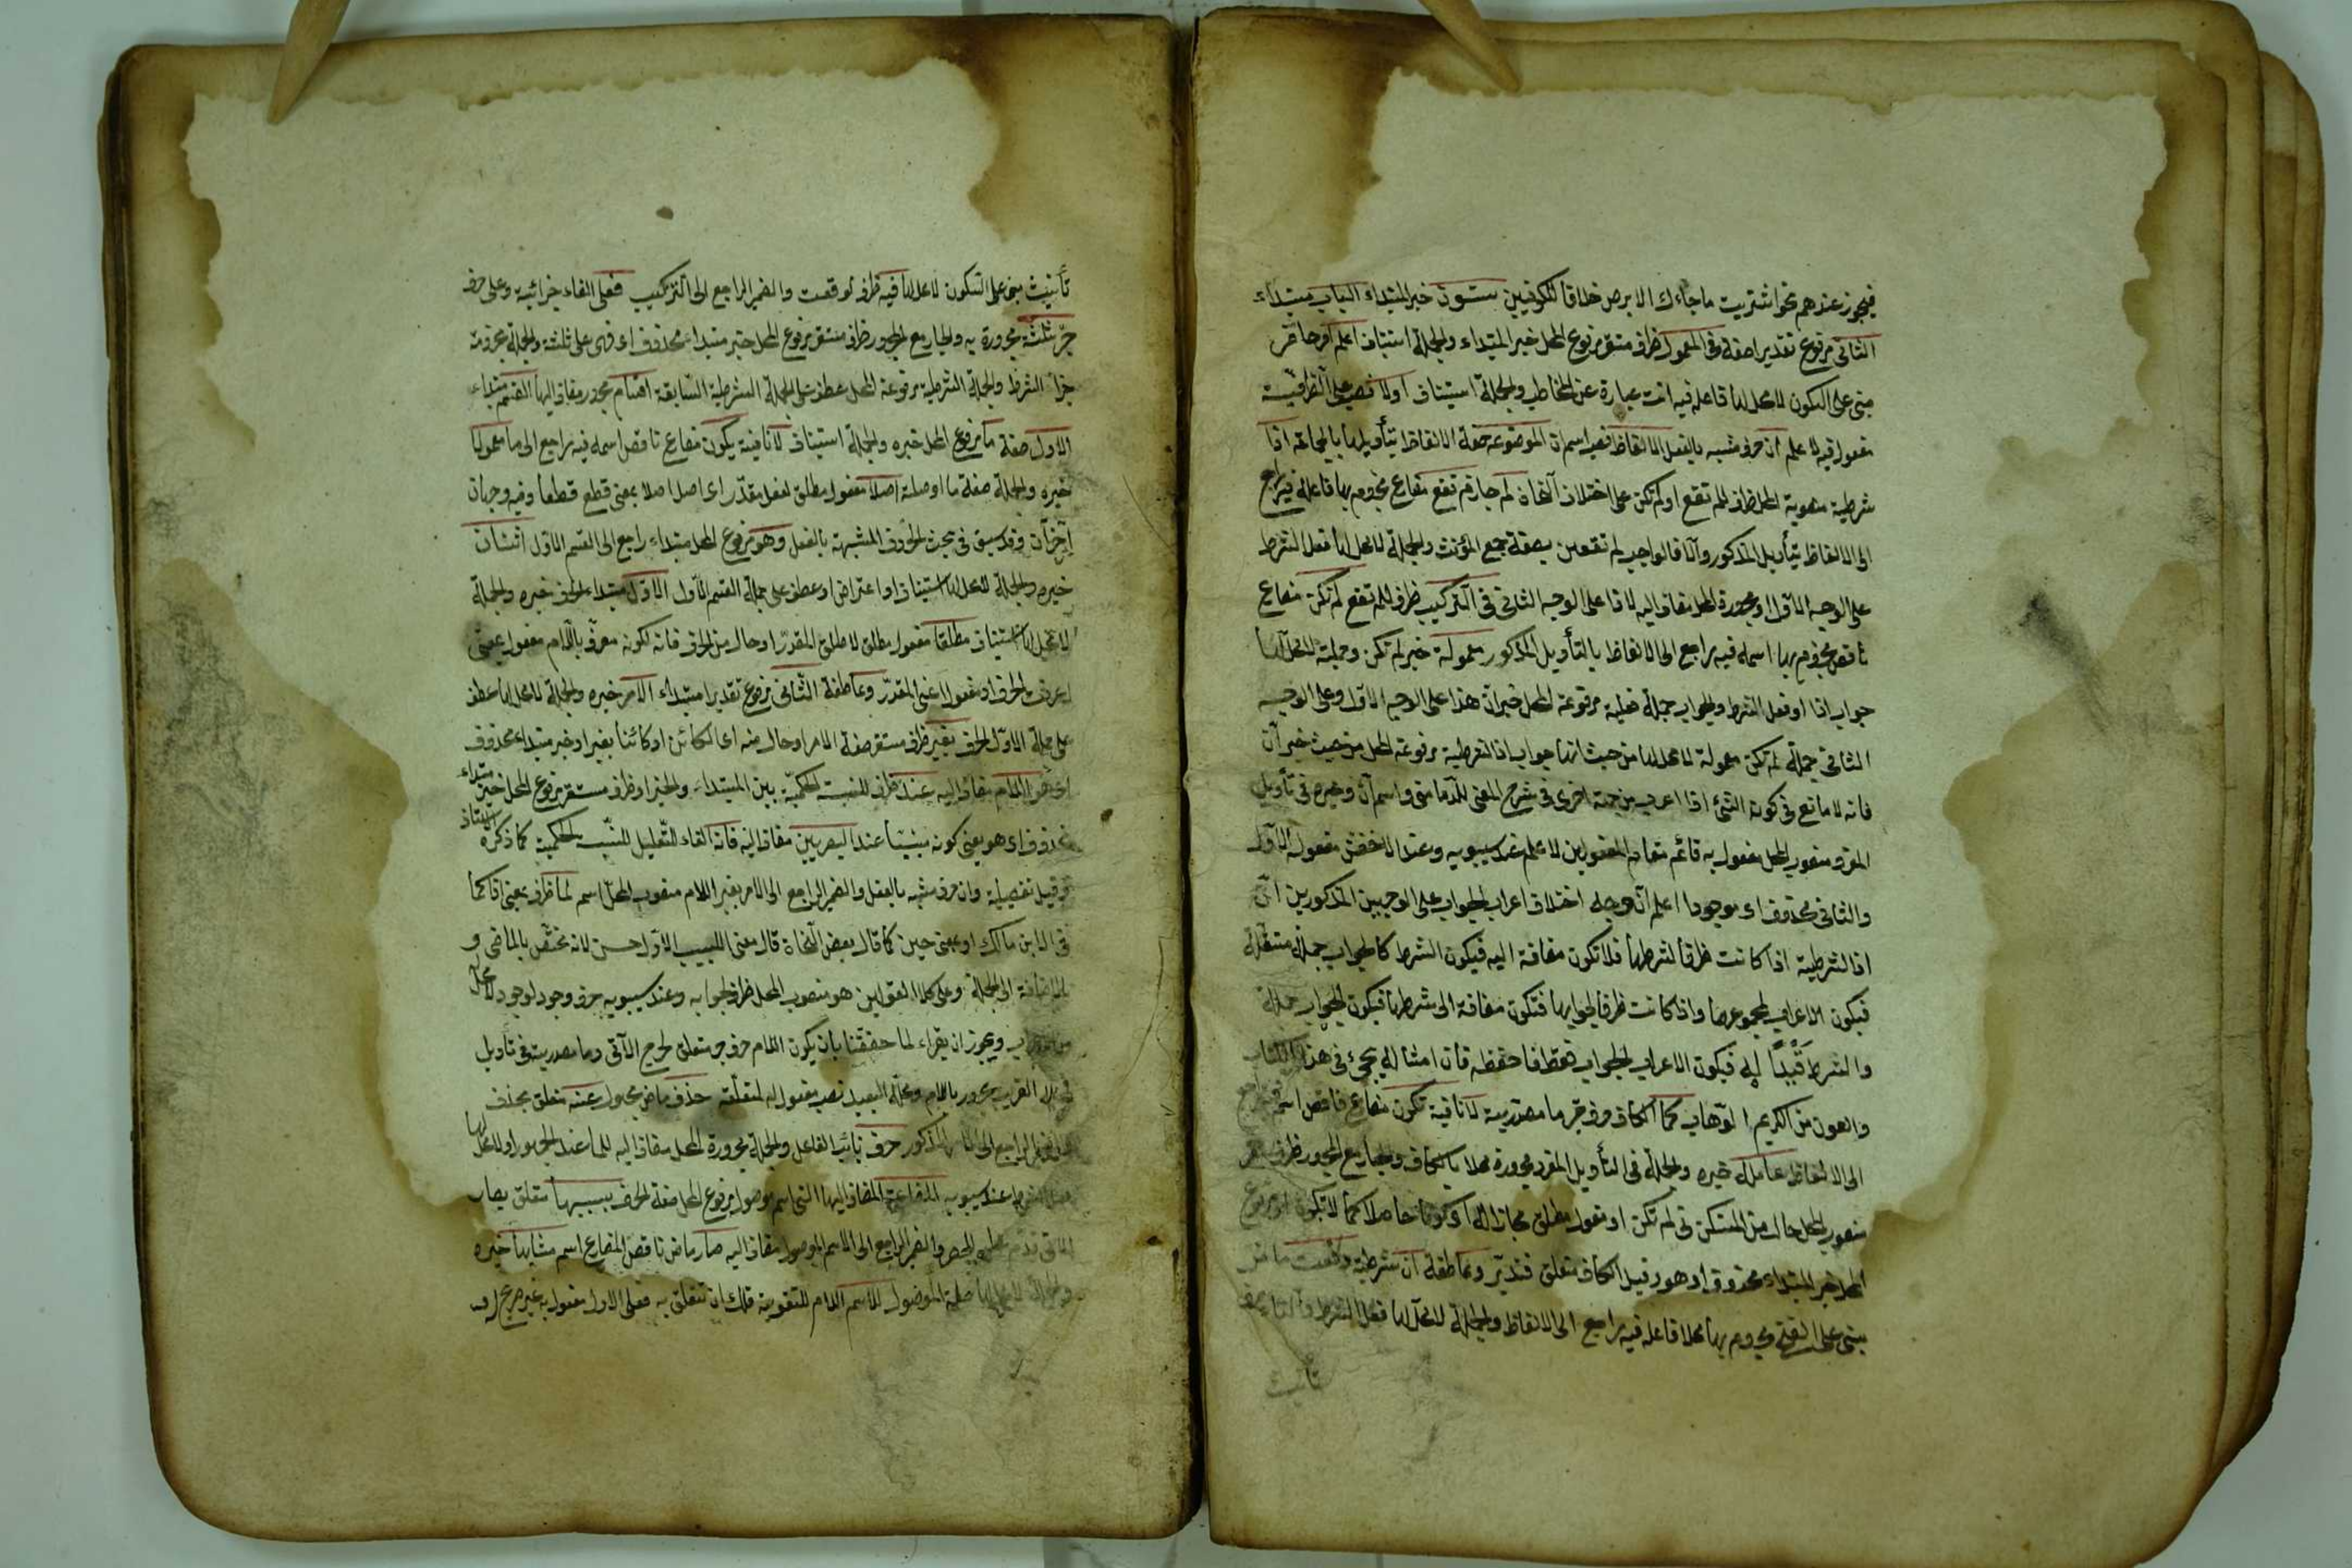 فيجوز عندهم نحو اشتريت ما جاءك الا برص خلافا للكوفيين ستون خبر المبتداء الباب مبتداء
الثانى مرفوع تقديرا صفة وفى المعمول ظرف مستقر مرفوع المحل خبر المبتداء والجملة استيناف اعلم امر حاضر
مبنى على السكون لا محل لها فاعله فيه انت عبارة عن المخاطب والجملة استيناف اولا نصب على الظرفية
مفعول فيه لاعلم ان حرف مشبه بالفعل الالفاظ نصب اسم ان الموضوعة صفة الالفاظ بتأويلها بالجماعة اذا
شرطية منصوبة المحل ظرف للم تقع او لم تكن على اختلاف النحاة لم جازم تقع مضارع مجزوم بها فاعله فيه راجع
الى الالفاظ بتأويل المذكور والا فالواجب لم تقعن بصيغة جمع المؤنث والجملة لا محل لها فعل الشرط
على الوجه الاول او مجرورة المحل مضاف اليه لاذا على الوجه الثانى فى التركيب ظرف للم تقع لم تكن مضارع
ناقص مجزوم بها اسمه فيه راجع الى الالفاظ بالتأويل المذكور معمولة خبر لم تكن وجملته لا محل لها
جواب اذا او فعل الشرط والجواب جملة فعلية مرفوعة المحل خبر ان هذا على الوجه الاول وعلى الوجه
الثانى جملة لم تكن معمولة لا محل لها من حيث انها جواب اذا الشرطية مرفوعة المحل من حيث خبر ان
فانه لا مانع فى كون الشئ اذا اعراب من جهة اخرى فى شرح المغنى للدمامينى واسم ان وخبره فى تأويل
المفرد منصوب المحل مفعول به قائم مقام المفعولين لاعلم عند سيبويه وعند الاخفش مفعوله الاول
والثانى محذوف اى موجودا اعلم ان وجه اختلاف اعراب الجواب على الوجهين المذكورين ان
اذا الشرطية اذا كانت ظرفا لشرطها فلا تكون مضافة اليه فيكون الشرط كالجواب جملة مستقلة
فيكون الاعراب لمجموعهما واذا كانت ظرفا لجوابها فتكون مضافة الى شرطها فيكون الجواب جملة
والشرط قَيْدًا له فيكون الاعراب للجواب فقط فاحفظه فان امثاله يجئ فى هذا الكتاب
والعون من الكريم الوهاب كما الكاف حرف جر ما مصدرية لا نافية تكون مضارع ناقص اسمه فيه راجع
الى الالفاظ عاملة خبره والجملة فى التأويل المفرد مجرورة محلا بالكاف والجار مع المجرور ظرف مستقر
منصوب المحل حال من المستكن فى لم تكن او مفعول مطلق مجازا له اى كونا حاصلا كما لا تكون او مرفوع
المحل خبر المبتداء محذوف اى هو وقيل الكاف متعلق فتدبر وعاطفة ان شرطية وقعت ماض
مبنى على الفتح مجزوم بها محلا فاعله فيه راجع الى الالفاظ والجملة لا محل لها فعل الشرط والتاء
تأنيث
تأنيث مبنى على السكون لا محل لها فيه ظرف لوقعت والضمير الراجع الى التركيب فعلى الفاء جزائية وعلى حرف
جر ثلثة مجرورة به والجار مع المجرور ظرف مستقر مرفوع المحل خبر مبتداء محذوف اى فهى على ثلثة والجملة مجزومة
جزاء الشرط والجملة الشرطية مرفوعة المحل عطف على الجملة الشرطية السابقة اقسام مجرور مضاف اليها القسم مبتداء
الاول صفة ما مرفوع المحل خبره والجملة استيناف لا نافية يكون مضارع ناقص اسمه فيه راجع الى ما معمولا
خبره والجملة صفة ما او صلته اصلا مفعول مطلق لفعل مقدر اى اصل اصلا بمعنى قطع قطعا وفيه وجهان
آخران وقد سبق فى بحث الحروف المشبهة بالفعل وهو مرفوع المحل مبتداء راجع الى القسم الاول اثنان
خبره والجملة لا محل لها استيناف او اعتراض او عطف على جملة القسم الاول الاول مبتداء الحرف خبره والجملة
لا محل لها استيناف مطلقا مفعول مطلق لاطلق المقدر او حال من الحرف فانه لكونه معرف باللام مفعول بمعنى
اعرفت الحرف او مفعول اعنى المقدر وعاطفة الثانى مرفوع تقديرا مبتداء الامر خبره والجملة لا محل لها عطف
على جملة الاول الحرف بغير ظرف مستقر صفة الامر او حال منه اى الكائن او كائنا بغير او خبر مبتداء محذوف
اى هو اللام مضاف اليه عند ظرف للنسبة الحكمية بين المبتداء والخبر او ظرف مستقر مرفوع المحل خبر مبتداء
محذوف اى هو يعنى كونه مبنيا عند البصريين مضاف اليه فانه الفاء للتعليل للنسبة الحكمية كما ذكره الاستاذ
وقيل تفصيلية وان حرف مشبه بالفعل والضمير الراجع الى الامر بغير اللام منصوب المحل اسم لما ظرف بمعنى اذ كما
فى ابن مالك او بمعنى حين كما قال بعض النحاة قال مغنى اللبيب الاول احسن لانه مختص بالماضى و
بالاضافة الى الجملة وعلى كلا القولين هو منصوب المحل ظرف لجوابه وعند سيبويه حرف وجود لوجود لا محل
من الاعراب ويجوز ان يقراء لما حققنا بان يكون اللام حرف جر متعلق لحرج الآتى وما مصدرية فى تأويل
القريب مجرور باللام ومحله البعيد نصب مفعول له لمتعلقه حذف ماض مجهول عنه متعلق بحذف
والضمير الراجع الى المذكور حرف نائب الفاعل والجملة مجرورة المحل مضاف اليه للما عند الجمهور او لا محل لها
عند سيبويه المضارعة المضاف اليها التى اسم موصول مرفوع المحل صفة الحرف بسببها متعلق بصار
الآتى قدم عليه للحصر والضمير الراجع الى الاسم الموصول مضاف اليه صار ماض ناقص المضارع اسم مشابها خبره
والجملة لا محل لها صلة الموصول للاسم اللام للتقوية فلك ان تتعلق به فعلى الاول مفعول به غير صريح له